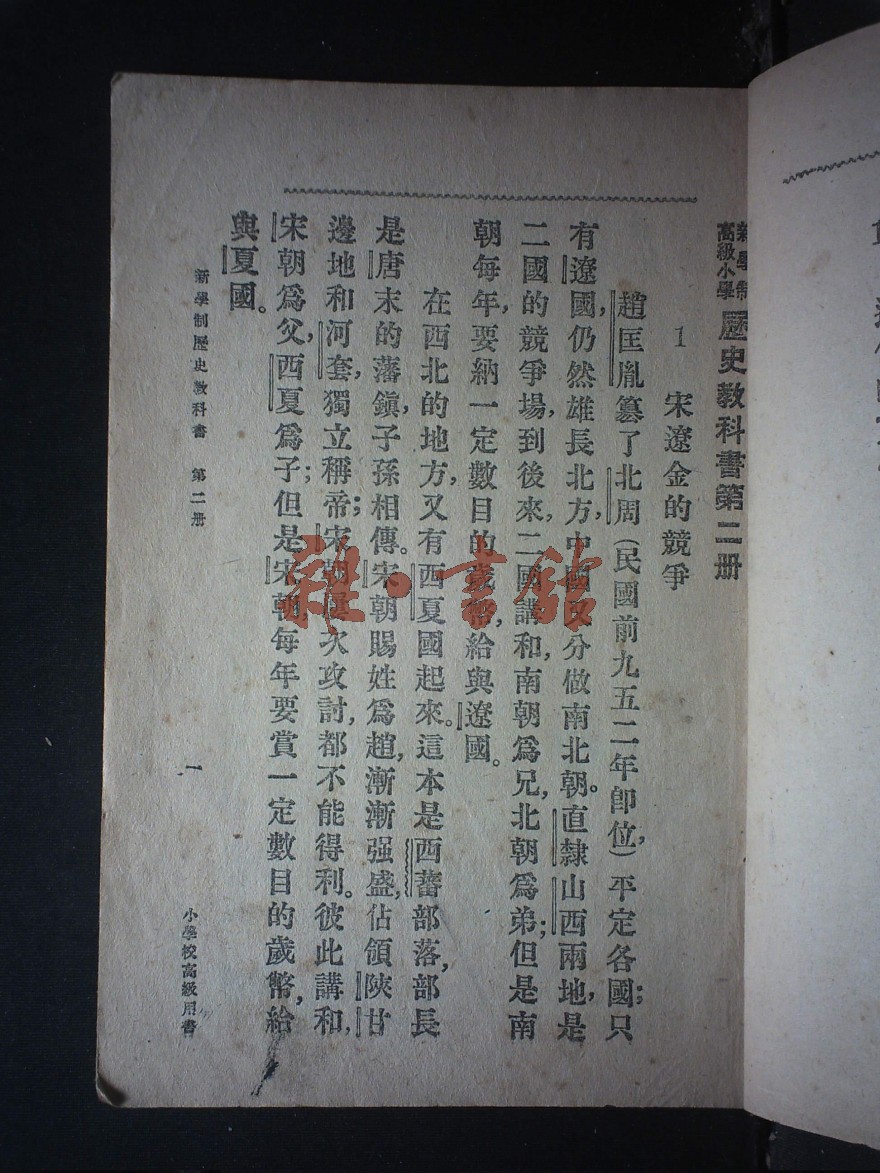 新學制
高級小學
歷史教科書第二册
1 宋遼金的競爭
趙匡胤篡了北周(民國前九五二年卽位,)平定各國;只
有遼國,仍然雄長北方,中國又分做南北朝。直隸山西兩地,是
二國的競爭場,到後來,二國講和,南朝爲兄,北朝爲弟;但是南
朝每年,要納一定數目的歲幣,給與遼國。
在西北的地方,又有西夏國起來。這本是西蕃部落,部長
是唐末的藩鎭,子孫相傳。宋朝賜姓爲趙,漸漸强盛,佔領陝甘
邊地和河套,獨立稱帝;宋朝屢次攻討,都不能得利。彼此講和,
宋朝爲父,西夏爲子;但是宋朝,每年要賞一定數目的歲幣,給
與夏國。
新學制歷史教科書 第二册
一
小學校高級用書
雜·書館